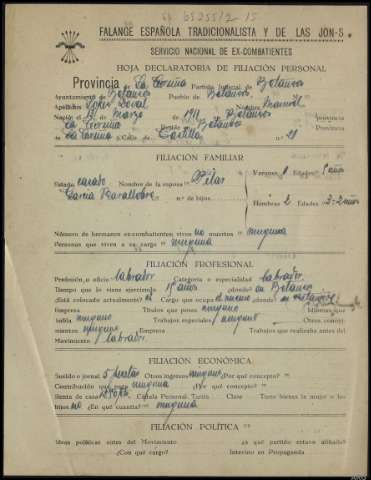 FALANGE ESPAÑOLA TRADICIONALISTA Y DE LAS JON-S.
SERVICIO NACIONAL DE EX-COMBATIENTES
HOJA DECLARATORIA DE FILIACIÓN PERSONAL
Provincia de La Coruña Partido Judicial de Betanzos
Ayuntamiento de Betanzos Pueblo de Betanzos
Apellidos Nombre Manuel
Nación el de Marzo de 1911 Betanzos Provincia
La Coruña Región Betanzos Provincia
La Coruña Calle de Castilla n.º 21
FILIACIÓN FAMILIAR
Estado casado Nombre de la esposa Pilar Varones 1 Edades 1 año
García n.º de hijos Hembras 2 Edades 3-2 años
Número de hermanos ex-combatientes vivos no muertos ninguno
Personas que viven a su cargo ninguna
FILIACIÓN PROFESIONAL
Profesión u oficio labrador Categoría o especialidad labrador
Tiempo que lo viene ejerciendo años ¿donde? en Betanzos
¿Está colocado actualmente? sí Cargo que ocupa el mismo ¿donde?
Empresa Títulos que posee ninguno Idiomas que
habla ninguno Trabajos especiales ninguno Otros conoci-
mientos ninguno Empresa Trabajos que realizaba antes del
Movimiento labrador
FILIACIÓN ECONÓMICA
Sueldo o jornal 5 pesetas Otros ingresos ninguno ¿Por qué concepto?
Contribución que paga ninguna ¿Por qué concepto?
Renta de casa Cédula Personal Tarifa Clase Tiene bienes la mujer o los
hijos no ¿En qué cuantía? ninguna
FILIACIÓN POLÍTICA
Ideas políticas antes del Movimiento ¿A qué partido estuvo afiliado?
¿Con qué cargo? Intervino en Propaganda